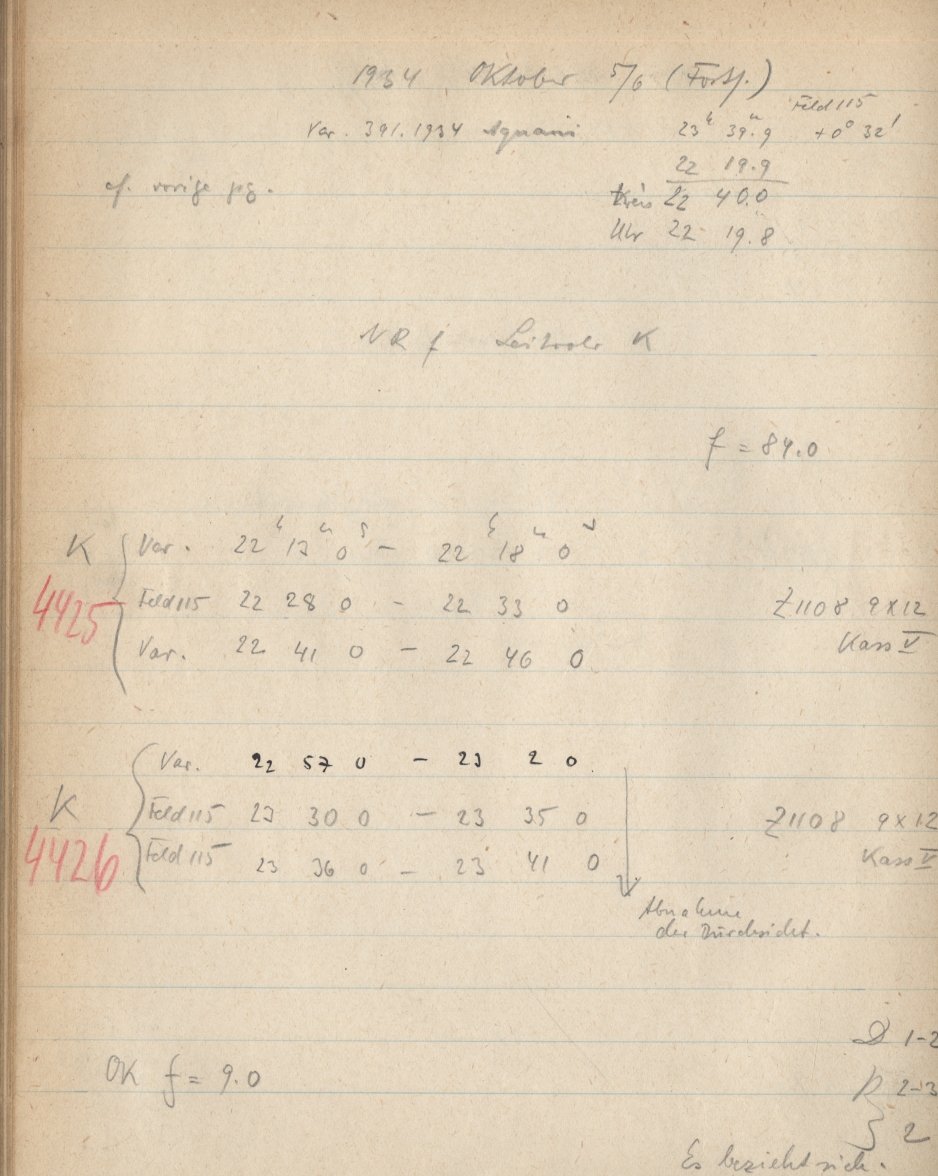 1934 Oktober 5/6 (Forts.)
Feld 115
Var. 391.1934 Aquarii 23h 39m.9 +0° 32'
22 19.9
cf. vorige pg. Kreis 22 40.0
Uhr 22 19.8
NR f Leitrohr K
f = 84.0
K Var. 22h 13m 0s - 22h 18m 0s
4425 Feld 115 22 28 0 - 22 33 0 Z1108 9x12
Var. 22 41 0 - 22 46 0 Kass V
Var. 22 57 0 - 23 2 0
K Feld 115 23 30 0 - 23 35 0 Z1108 9x12
4426 Feld 115 23 36 0 - 23 41 0 Kass V
Abnahme
der Durchsicht.
D 1-2
OK f = 9.0 P 2-3
2
Es bezieht sich.